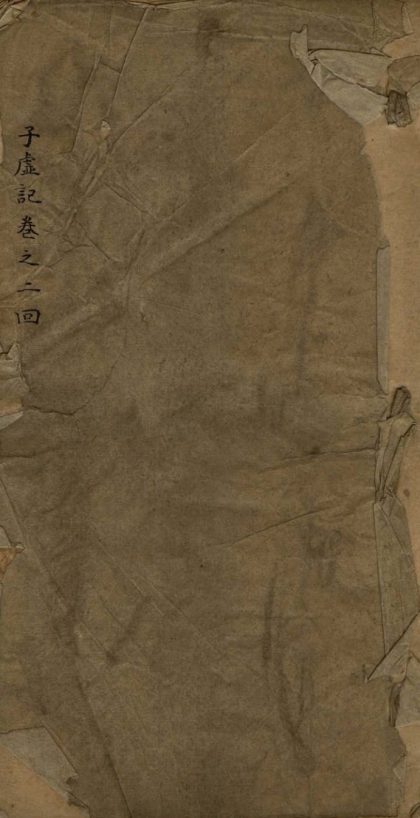 子虛記卷之二回